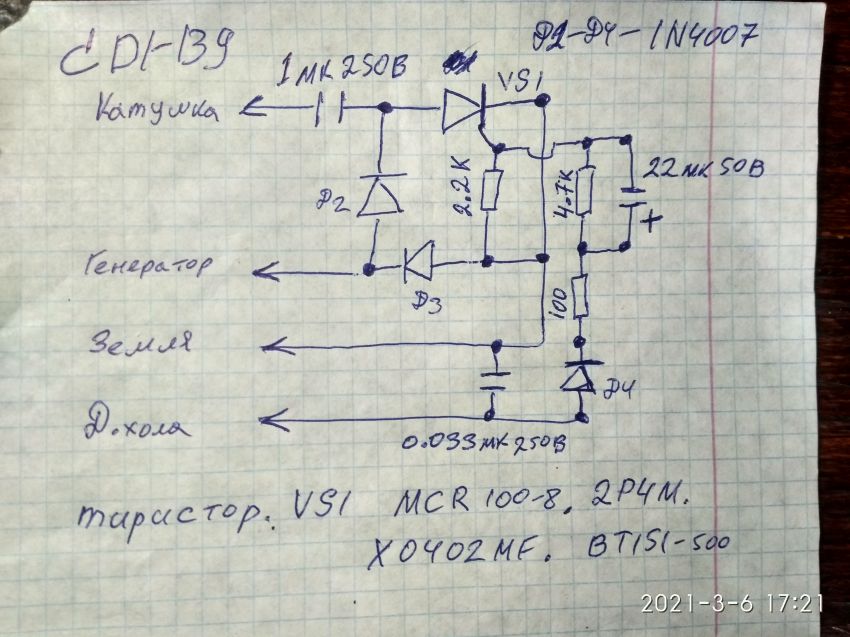 CDI-139
D2-D4-1N4007
1 мк 250В
VS1
Катушка
2.2К
4.7К
22мк50В
+
D2
Генератор
D3
100
Земля
D4
Д.хола
0.033мк250В
тиристор. VS1 MCR 100-8. 2P4M.
X0402MF. BT151-500
2021-3-6 17:21